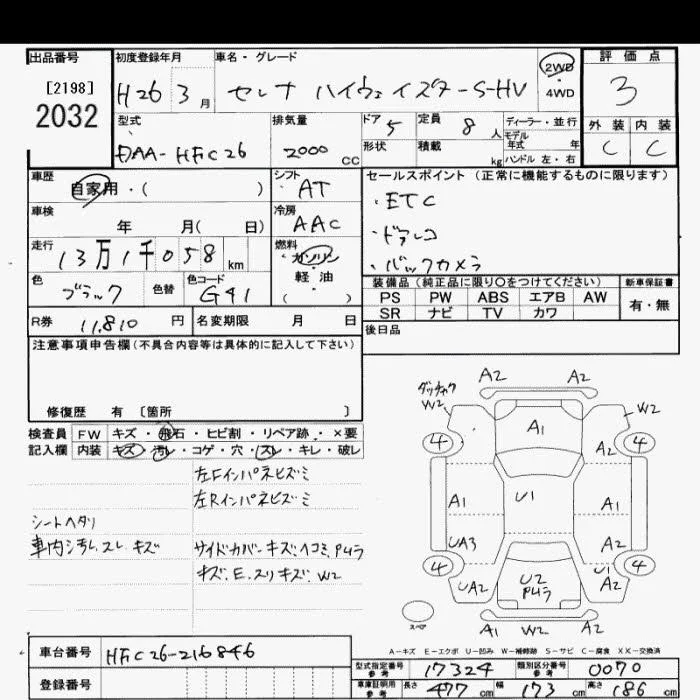 出品番号
[2198]
2032
初度登録年月
H26 3月
車名・グレード
セレナ ハイウェイスター S-HV
2WD
・
4WD
評価点
3
外装 内装
C C
型式
DAA-HFC26
排気量
2000 CC
ドア 5
定員 8 人
形状
積載 kg
ディーラー・並行
モデル年式 年
ハンドル 左・右
車歴
自家用・( )
シフト
AT
セールスポイント (正常に機能するものに限ります)
・ETC
・ドアレコ
・バックカメラ
車検
年 月( 日)
冷房
AAC
走行
13万1千058 km
燃料
ガソリン
軽・油
( )
色
ブラック
色替
色コード
G41
装備品 (純正品に限り〇をつけてください)
PS PW ABS エアB AW
SR ナビ TV カワ
新車保証書
有・無
R券 11,810 円
名変期限 月 日
後日品
注意事項申告欄(不具合内容等は具体的に記入して下さい)
修復歴 有 〔箇所 〕
検査員 FW キズ・飛石・ヒビ割・リペア跡・×要
記入欄 内装 キズ・汚レ・コゲ・穴・スレ・キレ・破レ
左Fインパネビズミ
左Rインパネビズミ
シートヘタリ
車内汚レ、スレ、キズ
サイドカバーキズ、ヘコミ、Pムラ
キズ、E、スリキズ、W2
A2 A2
ダッチャク
W2 W2
4 A1 4
A2
A1 U1 A1
UA3 A2
4 4
UA2 U2 Pムラ U1 A2
スペア
A1 W2 A2
A-キズ E-エクボ U-凹み W-補修跡 S-サビ C-腐食 XX-交換済
車台番号 HFC26-216846
登録番号
型式指定番号 参考 17324
類別区分番号 参考 0070
車庫証明用 参考 長さ 477 cm 幅 173 cm 高さ 186 cm